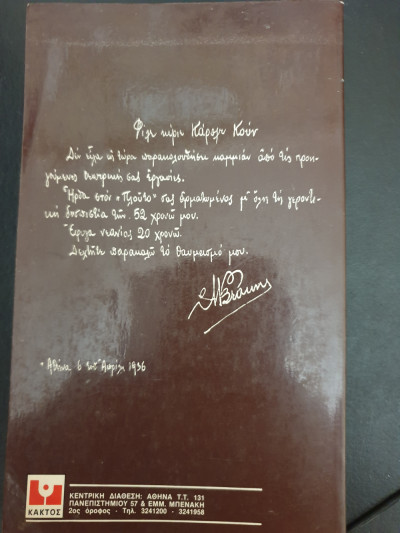 Φίλε κύριε Κάρολε Κούν
Δέν εἶχα ὥς τώρα παρακολουθήσει καμμιάν ἀπό τίς προη-
γούμενες θεατρικές σας ἐργασίες.
Ἦρθα στόν "Πλοῦτο" σας ἁρματωμένος μ' ὅλη τή γεροντι-
κή δυσπιστία τῶν 52 χρονῶ μου.
Ἔφυγα νεανίας 20 χρονῶ.
Δεχτῆτε παρακαλῶ τό θαυμασμό μου.
Ἀθήνα 6 τοῦ Ἀπρίλη 1936
ΚΑΚΤΟΣ
ΚΕΝΤΡΙΚΗ ΔΙΑΘΕΣΗ: ΑΘΗΝΑ Τ.Τ. 131
ΠΑΝΕΠΙΣΤΗΜΙΟΥ 57 & ΕΜΜ. ΜΠΕΝΑΚΗ
2ος όροφος - Τηλ. 3241200 - 3241958